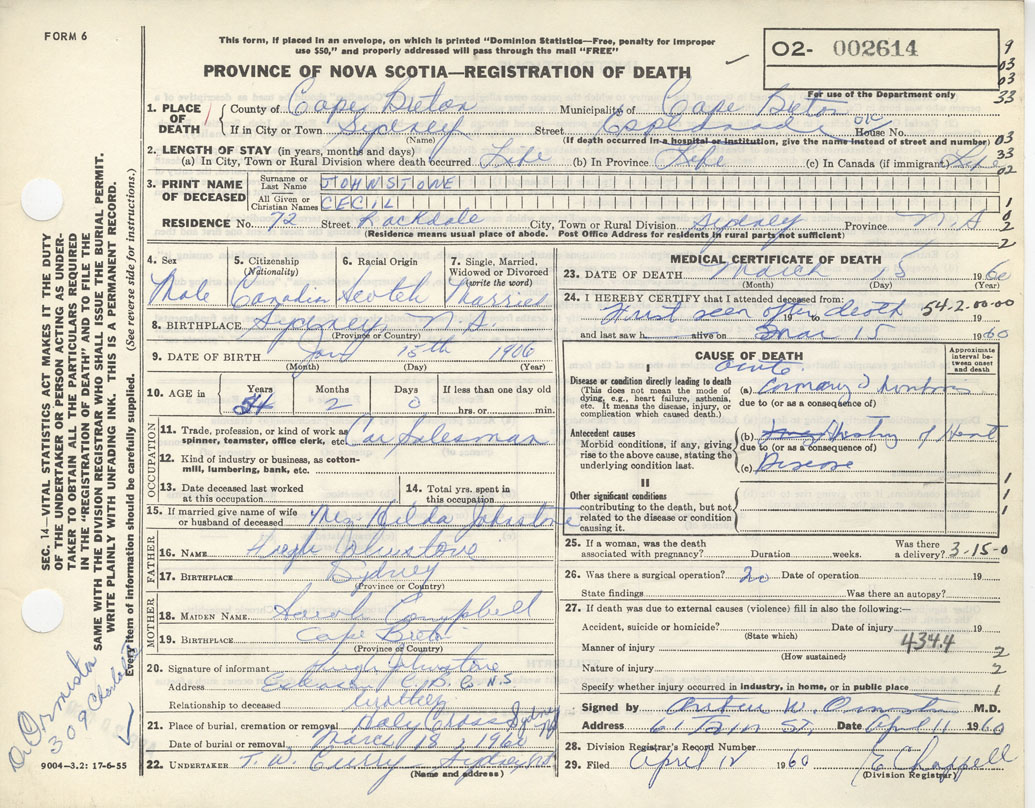 FORM 6
This form, if placed in an envelope, on which is printed "Dominion Statistics—Free, penalty for improper
use $50," and properly addressed will pass through the mail "FREE"
PROVINCE OF NOVA SCOTIA—REGISTRATION OF DEATH
02- 002614
For use of the Department only
9
03
03
33
1. PLACE OF DEATH
County of Cape Breton Municipality of Cape Breton
If in City or Town Sydney Street Esplanade House No.
(Name) (If death occurred in a hospital or institution, give the name instead of street and number)
03
2. LENGTH OF STAY (in years, months and days)
33
(a) In City, Town or Rural Division where death occurred Life (b) In Province Life (c) In Canada (if immigrant) Life
02
3. PRINT NAME OF DECEASED
Surname or Last Name JOHNSTONE
All Given or Christian Names CECIL
RESIDENCE No. 72 Street Rockdale City, Town or Rural Division Sydney Province N.S
(Residence means usual place of abode. Post Office Address for residents in rural parts not sufficient)
4. Sex
Male
5. Citizenship
(Nationality)
Canadian
6. Racial Origin
Scotch
7. Single, Married, Widowed or Divorced
(write the word)
Married
8. BIRTHPLACE Sydney, N.S.
(Province or Country)
9. DATE OF BIRTH Jan 15th 1906
(Month) (Day) (Year)
10. AGE in
Years 54
Months 2
Days 0
If less than one day old
hrs. or min.
OCCUPATION
11. Trade, profession, or kind of work as spinner, teamster, office clerk, etc. Car Salesman
12. Kind of industry or business, as cotton-mill, lumbering, bank, etc.
13. Date deceased last worked at this occupation
14. Total yrs. spent in this occupation
15. If married give name of wife or husband of deceased Mrs. Hilda Johnstone
FATHER
16. NAME Hugh Johnstone
17. BIRTHPLACE Sydney
(Province or Country)
MOTHER
18. MAIDEN NAME Sarah Campbell
19. BIRTHPLACE Cape Breton
(Province or Country)
20. Signature of informant Hugh Johnstone
Address C.B. N.S
Relationship to deceased
21. Place of burial, cremation or removal Holy Cross Sydney
Date of burial or removal March 18, 1960
22. UNDERTAKER T.W. Curry - Sydney, N.S.
(Name and address)
MEDICAL CERTIFICATE OF DEATH
23. DATE OF DEATH March 15 1960
(Month) (Day) (Year)
24. I HEREBY CERTIFY that I attended deceased from:
First seen after death 54-2-00-00
19 to
and last saw h alive on Mar 15 1960
CAUSE OF DEATH
Approximate interval between onset and death
I
Disease or condition directly leading to death
(This does not mean the mode of dying, e.g., heart failure, asthenia, etc. It means the disease, injury, or complication which caused death.)
Acute
(a) Coronary Thrombosis
due to (or as a consequence of)
Antecedent causes
Morbid conditions, if any, giving rise to the above cause, stating the underlying condition last.
(b) History of Heart
due to (or as a consequence of)
(c) Disease
II
Other significant conditions
contributing to the death, but not related to the disease or condition causing it.
25. If a woman, was the death associated with pregnancy? Duration weeks. Was there a delivery? 3-15-0
26. Was there a surgical operation? no Date of operation 19
State findings Was there an autopsy?
27. If death was due to external causes (violence) fill in also the following:—
Accident, suicide or homicide? Date of injury 19
(State which)
Manner of injury 434.4
(How sustained)
Nature of injury
Specify whether injury occurred in industry, in home, or in public place
Signed by Arthur W. Ormiston M.D.
Address Date April 11 1960
28. Division Registrar's Record Number
29. Filed April 12 1960 E Chappell
(Division Registrar)
SEC. 14—VITAL STATISTICS ACT MAKES IT THE DUTY
OF THE UNDERTAKER OR PERSON ACTING AS UNDER-
TAKER TO OBTAIN ALL THE PARTICULARS REQUIRED
IN THE "REGISTRATION OF DEATH" AND TO FILE THE
SAME WITH THE DIVISION REGISTRAR WHO SHALL ISSUE THE BURIAL PERMIT.
WRITE PLAINLY WITH UNFADING INK. THIS IS A PERMANENT RECORD.
Every item of information should be carefully supplied. (See reverse side for instructions.)
Dr Ormiston
309 Charlotte
9004-3.2: 17-6-55